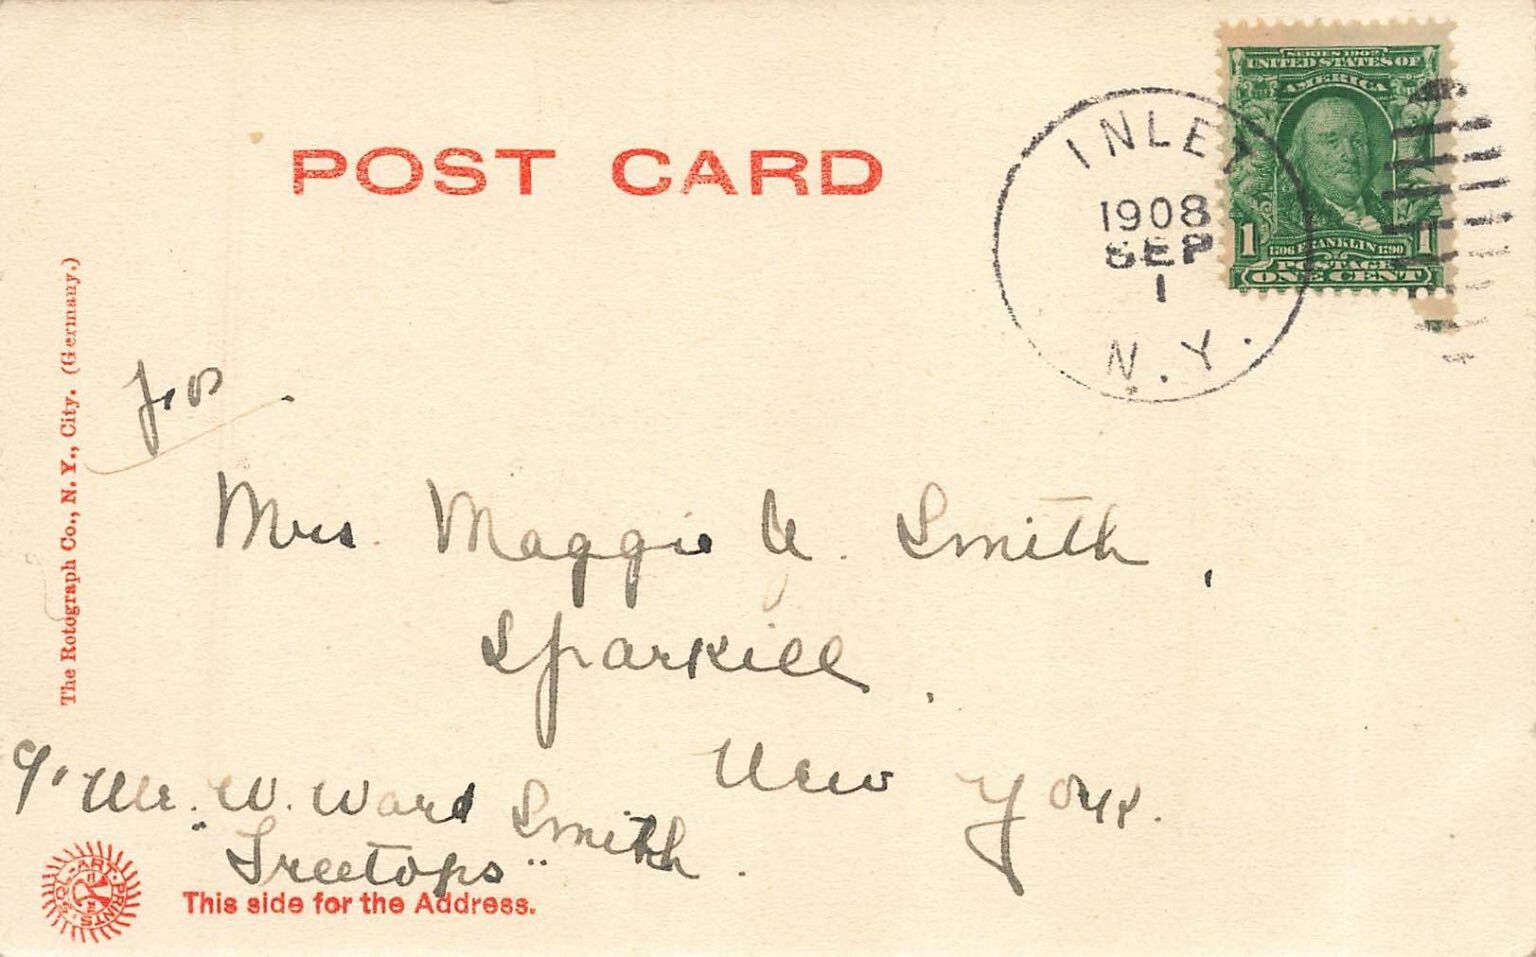 POST CARD
SERIES 1902
UNITED STATES OF
AMERICA
1 1706 FRANKLIN 1790 1
POSTAGE
ONE CENT
INLET
1908
SEP
1
N.Y.
The Rotograph Co., N. Y., City. (Germany.)
Mrs. Maggie A. Smith,
Sparkill,
New York.
Mr. W. Ward Smith.
"Treetops"
SOL-ART-PRINTS
This side for the Address.